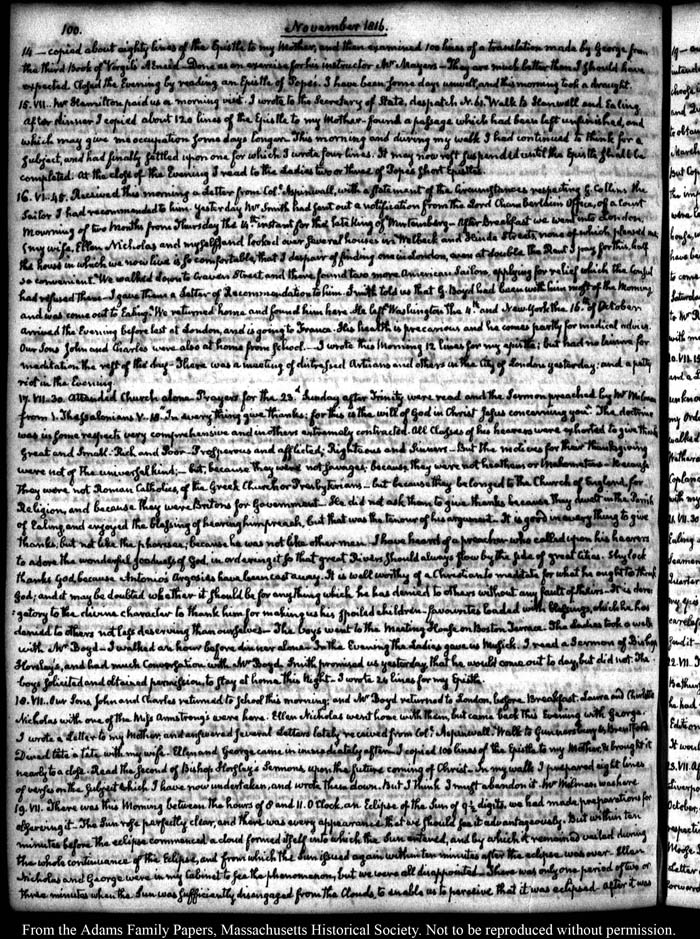 100.
November 1816.
14 — copied about eighty lines of the Epistle to my Mother, and then examined 100 lines of a translation made by George from
the third Book of Virgil's Æneid — Done as an exercise for his instructor Mr Mayers — They are much better than I should have
expected. Closed the Evening by reading an Epistle of Pope's. I have been some days unwell, and this morning took a draught.
15. VII. Mr Hamilton paid us a morning visit. I wrote to the Secretary of State, despatch N. 61. Walk to Hanwell and Ealing.
After dinner I copied about 120 lines of the Epistle to my Mother — found a passage which had been left unfinished, and
which may give me occupation some days longer. This morning and during my walk I had continued to think for a
subject, and had finally settled upon one for which I wrote four lines. It may now rest suspended until the Epistle shall be
completed. At the close of the Evening I read to the Ladies two or three of Pope's short Epistles.
16. VI. 45. Received this morning a Letter from Coll. Aspinwall, with a Statement of the Circumstances respecting G. Collins the
Sailor I had recommended to him. yesterday Mr Smith had sent out a notification from the Lord Chamberlain's Office, of a Court
Mourning of two Months from Thursday the 14th instant for the late King of Wurtemberg — After Breakfast we went into London,
(my wife, Ellen Nicholas and myself) and looked over several houses in Welbeck and Hinde Streets, none of which pleased me,
the house in which we now live is so comfortable, that I despair of finding one in London, even at double the Rent I pay for this, half
so convenient. We walked down to Craven Street and there found two more American Sailors, applying for relief which the Consul
had refused them — I gave them a Letter of Recommendation to him. Smith told us that G. Boyd had been with him most of the Morning
and was come out to Ealing. We returned home and found him here. He left Washington the 4th and New-York the 16th of October
arrived the Evening before last at London, and is going to France. His health is precarious and he comes partly for medical advice.
Our Sons John and Charles were also at home from School. — I wrote this Morning 12 lines for my epistle; but had no leisure for
meditation the rest of the day — There was a meeting of distressed Artizans and others in the City of London yesterday; and a petty
riot in the Evening.
17. VII. 30. Attended Church alone. Prayers for the 23d Sunday after Trinity were read and the Sermon preached by Mr Milman
from 1. Thessalonians V. 18. "In every thing give thanks: for this is the will of God in Christ Jesus concerning you." The doctrine
was in some respects very comprehensive and in others extremely contracted. All Classes of his hearers were exhorted to give thanks
Great and Small. Rich and Poor — Prosperous and afflicted; Righteous and Sinners — But the motives for their thanksgiving
were not of the universal kind; — but, because they were not Savages, because they were not heathens or Mahometans — because
They were not Roman Catholics, of the Greek Church or Presbyterians — but because they belonged to the Church of England, for
Religion, and because they were Britons for Government — He did not ask them to give thanks because they dwelt in the Parish
of Ealing, and enjoyed the blessing of hearing him preach, but that was the tenour of his argument. It is good in every thing to give
thanks, but not like the pharisee; because he was not like other men. I have heard of a preacher who called upon his hearers
to adore the wonderful goodness of God, in ordering it so that great Rivers should always flow by the side of great cities. Shylock
thanks God, because Antonio's Argosies have been cast away. It is well worthy of a Christian to meditate for what he ought to thank
God; and it may be doubted whether it should be for any thing which he has denied to others without any fault of theirs. It is dero=
gatory to the divine character to thank him for making us his spoiled children — favourites loaded with blessings, which he has
denied to others not less deserving than ourselves — The boys went to the Meeting House on Boston Terrace. The Ladies took a walk
with Mr Boyd. I walked an hour before dinner alone. In the Evening the Ladies gave us Musick. I read a Sermon of Bishop
Horsley's, and had much Conversation with Mr Boyd. Smith promised us yesterday, that he would come out to day, but did not. The
boys solicited and obtained permission to stay at home this Night. I wrote 24 lines for my Epistle.
18. VII. Our Sons John and Charles returned to School this morning; and Mr Boyd returned to London, before Breakfast. Laura and Charlotte
Nicholas with one of the Miss Armstrong's were here. Ellen Nicholas went home with them, but came back this Evening with George.
I wrote a Letter to my Mother, and answered several Letters lately received from Coll. Aspinwall. Walk to Gunnersbury & Brentford.
Dined tête à tête with my wife. Ellen and George came in immediately after. I copied 100 lines of the Epistle to my Mother, & brought it
nearly to a close. Read the second of Bishop Horsley's Sermons, upon the future coming of Christ. In my walk I prepared eight lines
of verses on the Subject which I have now undertaken, and wrote these down. But I think I must abandon it. Mr Milman was here
19. VII. There was this Morning between the hours of 8 and 11. O'Clock, an Eclipse of the Sun of 9½ digits, we had made preparations for
observing it. The Sun rose perfectly clear, and there was every appearance that we should see it advantageously. But within ten
minutes before the eclipse commenced a cloud formed itself into which the Sun entered, and by which it remained vailed during
the whole continuance of the Eclipse, and from which the Sun issued again within ten minutes after the eclipse was over. Ellen
Nicholas and George were in my Cabinet to see the phenomenon, but we were all disappointed. There was only one period of two or
three minutes when the Sun was sufficiently disengaged from the Clouds, to enable us to perceive that it was eclipsed. after it was
From the Adams Family Papers, Massachusetts Historical Society. Not to be reproduced without permission.